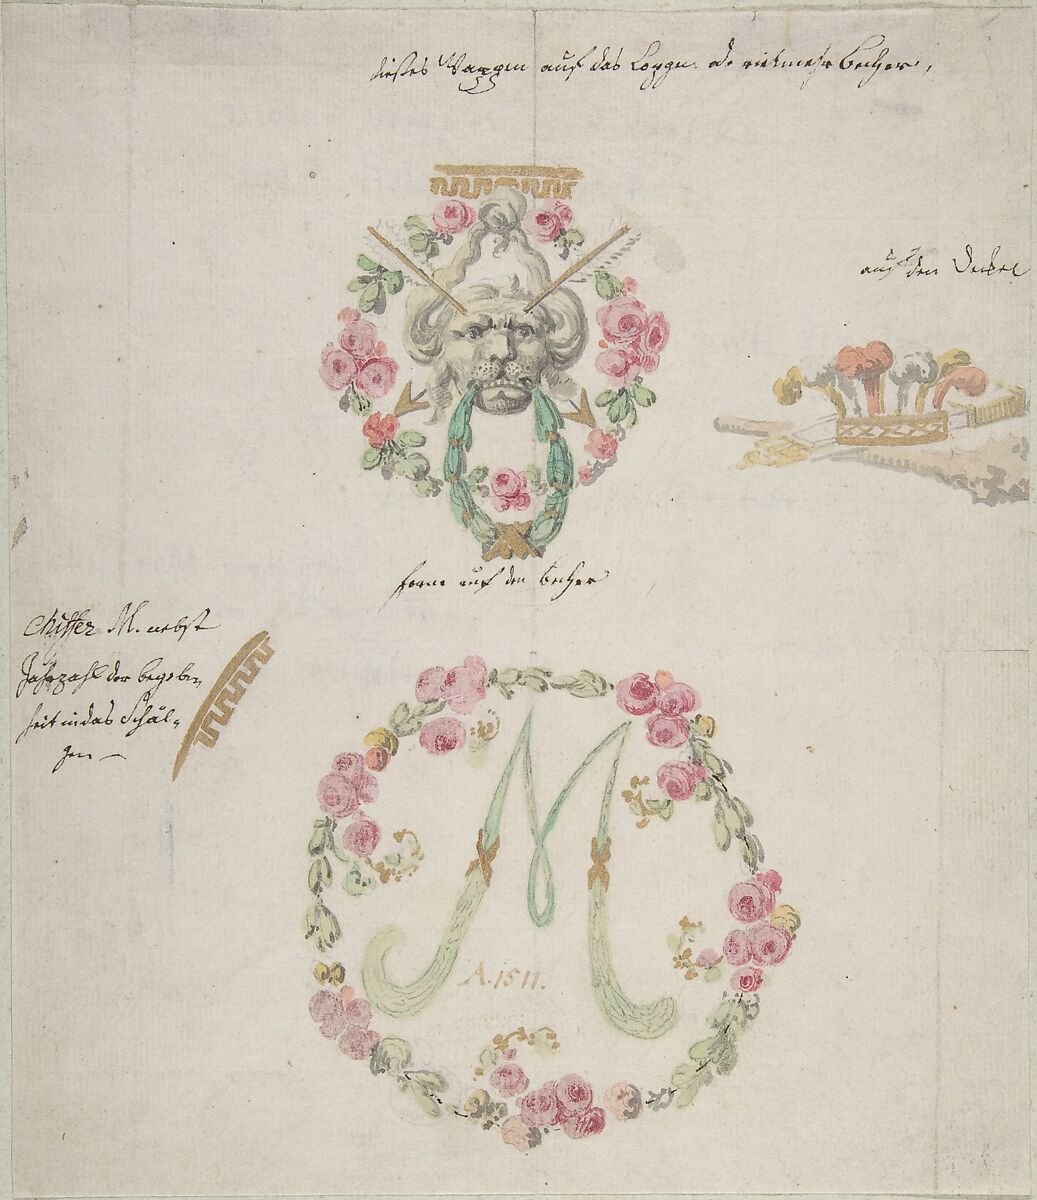 dieses Wappen auf das Coppgen od. vielmehr Becher,
auf den Deckel
forne auf den Becher
Chiffer M. nebst
Jahrzahl der begeben,
heit in das Schäl„
gen —
M
A. 1511.